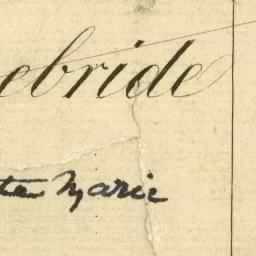 ebride
te Marie